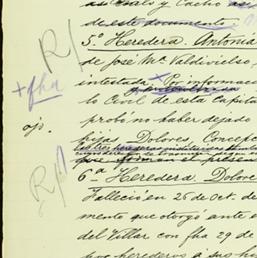 de este documento.
5ª Heredera. Antonia
de José Mª Valdivielso,
intestada. Por informac
lo Civil de esta capita
probó no haber dejado
hijas Dolores, Concepc
que forman el presen
6ª Heredera Dolore
Falleció en 26 de Oct. de
mento que otorgó ante e
del Villar con fha 29 de
por herederos a sus h
+ fha
ojo.